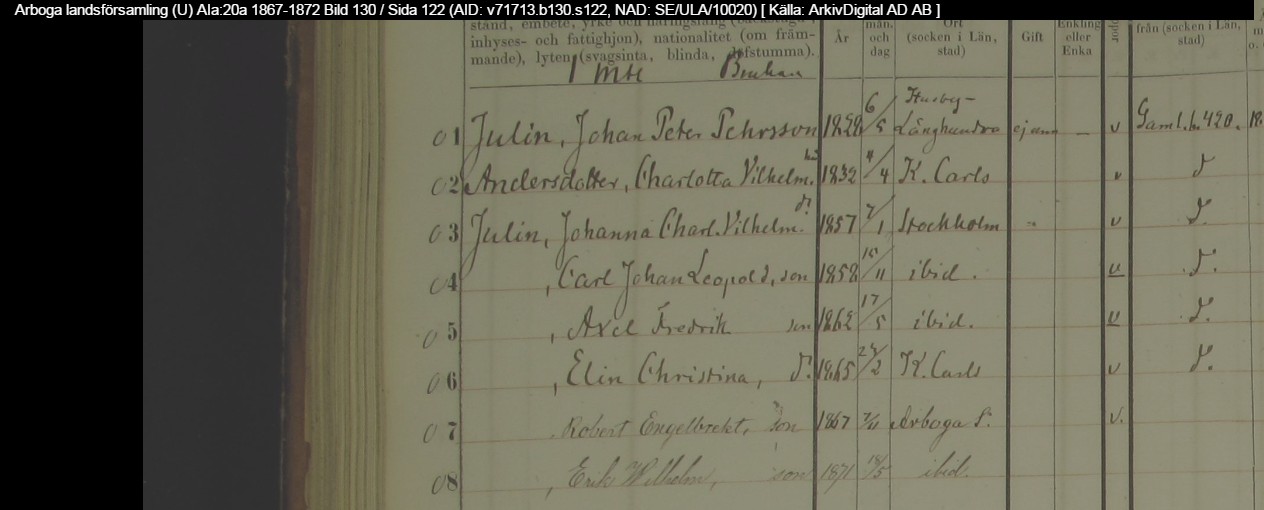 Arboga landsförsamling (U) AIa:20a 1867-1872 Bild 130 / Sida 122 (AID: v71713.b130.s122, NAD: SE/ULA/10020) [ Källa: ArkivDigital AD AB ]
inhyses- och fattighjon), nationalitet (om främ-
mande), lyten (svagsinta, blinda, döfstumma).
År
mån. och dag
Ort (socken i Län, stad)
Gift
Enkling eller Enka
från (socken i Län, stad)
01 Julin, Johan Peter Pehrsson 1828 6/5 Husby-Långhundra — v Gaml. b. 420. 18
02 Andersdotter, Charlotta Vilhelm. hu 1832 4/4 K. Carls v d
03 Julin, Johanna Charl. Vilhelm. d. 1857 7/1 Stockholm " v d.
04 , Carl Johan Leopold, son 1858 15/11 ibid. v d.
05 , Axel Fredrik son 1862 17/5 ibid. v d.
06 , Elin Christina, d. 1865 24/2 K. Carls v d.
07 . Robert Engelbrekt, son 1867 7/11 Arboga L. v.
08 , Erik Wilhelm, son 1871 18/5 ibid.